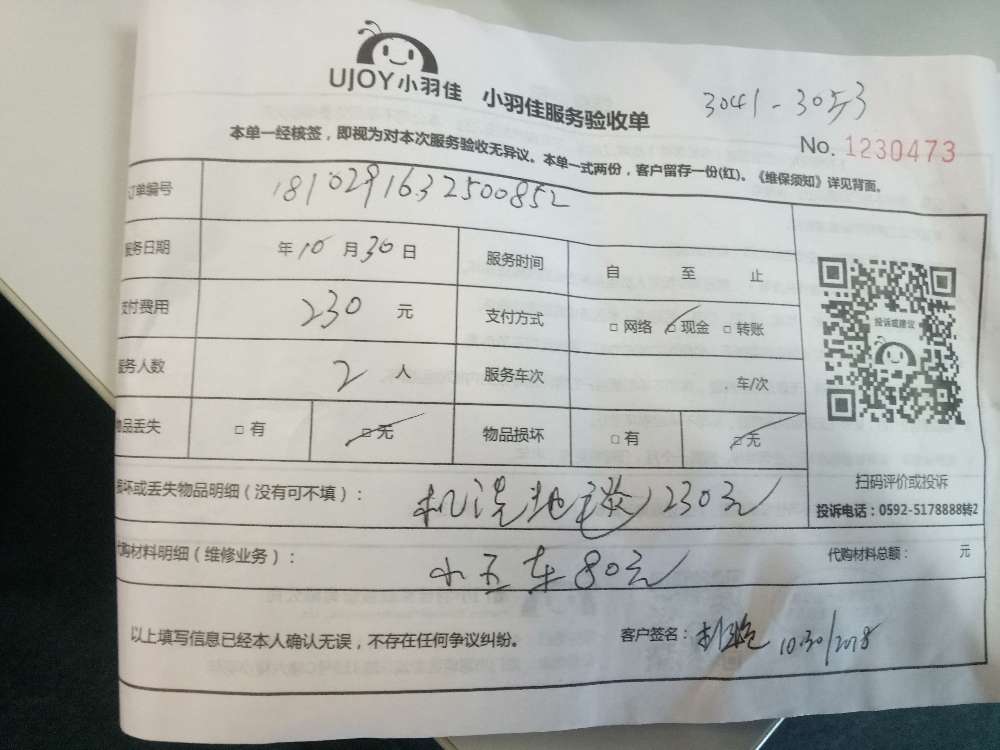 UJOY小羽佳 小羽佳服务验收单
3041-3053
No. 1230473
本单一经核签，即视为对本次服务验收无异议。本单一式两份，客户留存一份(红)。《维保须知》详见背面。
订单编号 1810291632500852
服务日期 年10月30日 服务时间 自 至 止
支付费用 230 元 支付方式 □网络 □现金 □转账
服务人数 2 人 服务车次 车/次
物品丢失 □有 □无 物品损坏 □有 □无
投诉或建议
扫码评价或投诉
投诉电话：0592-5178888转2
损坏或丢失物品明细（没有可不填）： 机洗地毯230元
代购材料明细（维修业务）： 小五车80元 代购材料总额： 元
以上填写信息已经本人确认无误，不存在任何争议纠纷。 客户签名： 10.30/2018